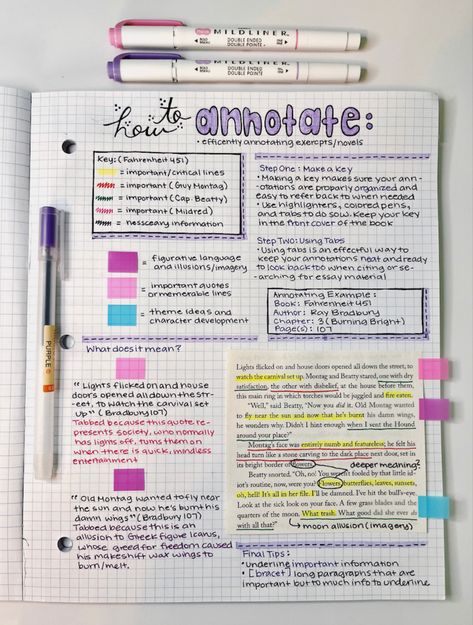 MILDLINER
DOUBLE ENDED
DOUBLE POINTE
MILDLINER
DOUBLE ENDED
DOUBLE POINTE
how to annotate:
• efficently annotating exerpts/novels
Key: (Fahrenheit 451)
= important/critical lines
= important (Guy Montag)
= important (Cap. Beatty)
= important (Mildred)
= nessceary information
= figurative language
and illusions/imagery
= important quotes
or memerable lines
= theme ideas and
character development
Step One: Make a Key
• Making a key makes sure your ann-
otations are properly organized and
easy to refer back to when needed
• Use highlighters, colored pens,
and tabs to do sow. Keep your key
in the front cover of the book
Step Two: Using Tabs
• Using tabs is an effectful way to
keep your annotations neat and ready
to look back too when citing or se-
arching for essay material
Annotating Example:
Book: Fahrenheit 451
Author: Ray Bradbury
Chapter: 3 (Burning Bright)
Page(s): 107
PURPLE
What does it mean?
"Lights flicked on and house
doors opened all down the str-
eet, to watch the carvival set
up" (Bradbury 107)
Tabbed because this quote re-
presents society, who normally
has lights off, turns them on
when there is quick, mindless
entertainment
"Old Montag wanted to fly near
the sun and now he's burnt his
damn wings" (Bradbury 107)
Tabbed because this is an
allusion to Greek figure Icarus,
whose greed for freedom caused
his makeshift wax wings to
burn/melt.
Lights flicked on and house doors opened all down the street, to
watch the carnival set up. Montag and Beatty stared, one with dry
satisfaction, the other with disbelief, at the house before them,
this main ring in which torches would be juggled and fire eaten.
"Well," said Beatty, "Now you did it. Old Montag wanted
to fly near the sun and now that he's burnt his damn wings,
he wonders why. Didn't I hint enough when I sent the Hound
around your place?"
Montag's face was entirely numb and featureless; he felt his
head turn like a stone carving to the dark place next door, set in
its bright border of flowers.
deeper meaning?
Beatty snorted. "Oh, no! You weren't fooled by that little id-
iot's routine, now, were you? Flowers, butterflies, leaves, sunsets,
oh, hell! It's all in her file. I'll be damned. I've hit the bull's-eye.
Look at the sick look on your face. A few grass blades and the
quarters of the moon. What trash. What good did she ever do
with all that?"
moon allusion (imagery)
Final Tips:
• underline important information
• [bracket] long paragraphs that are
important but to much info to underline